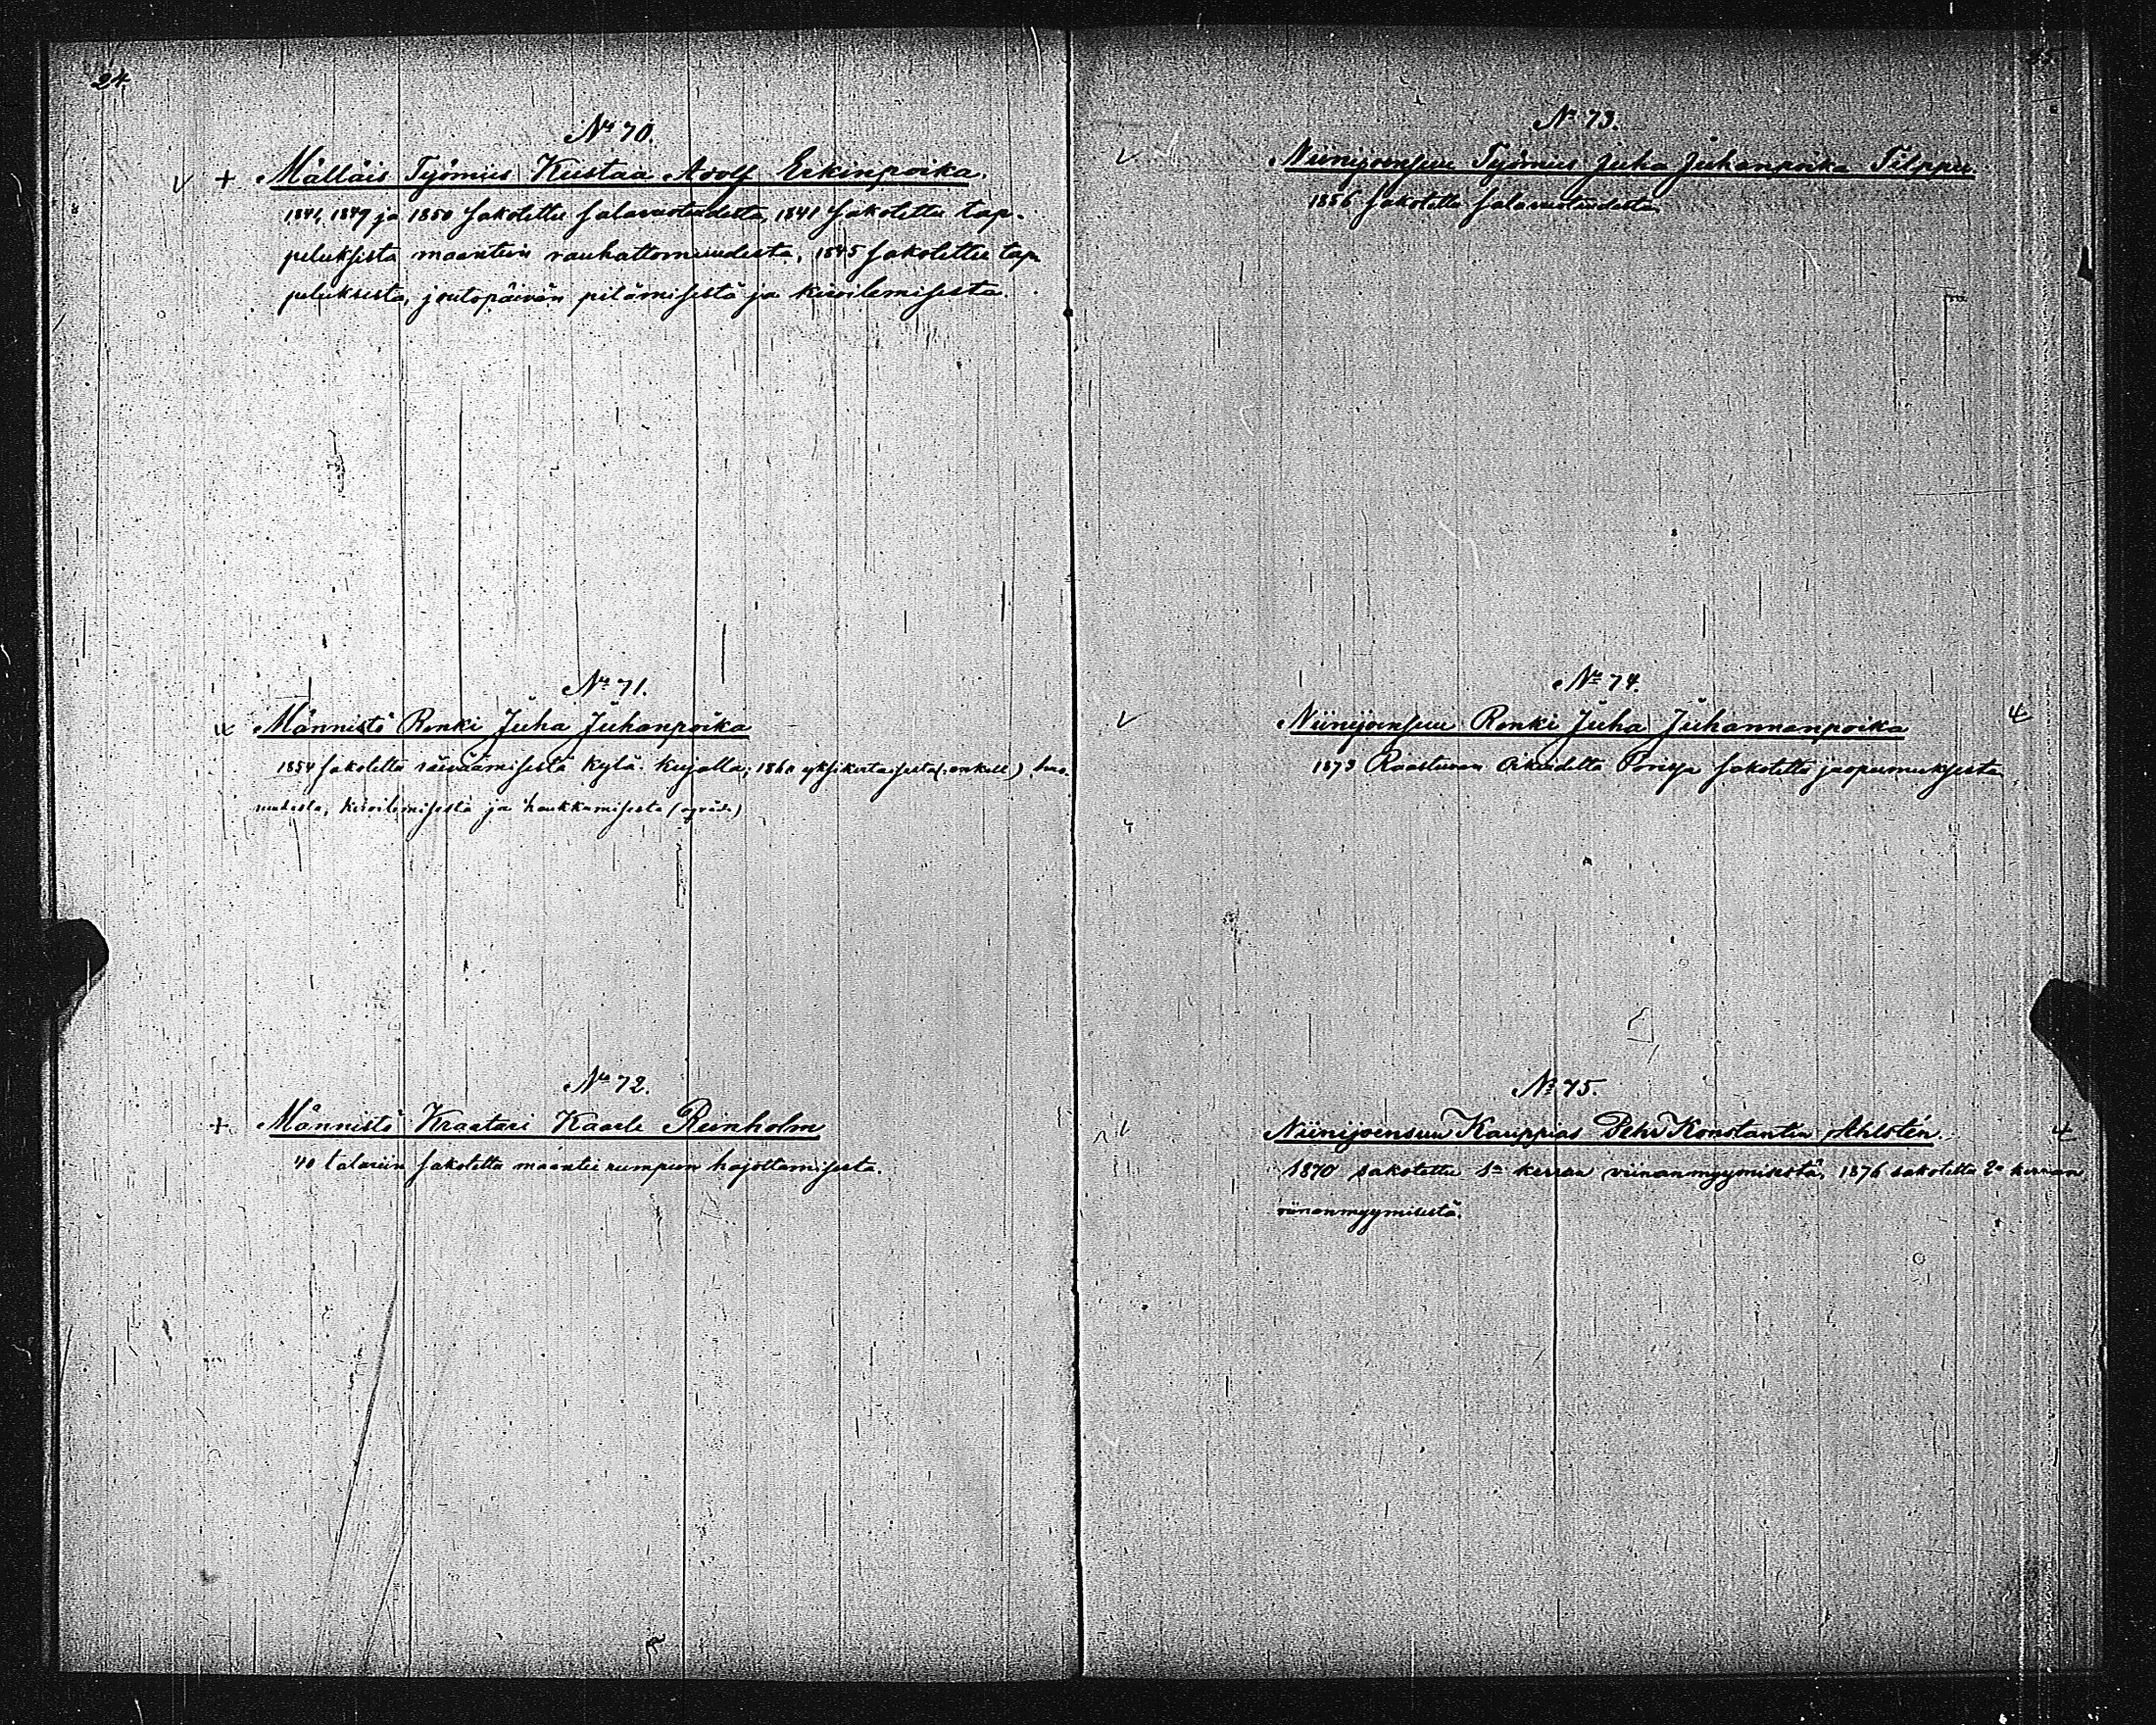 24.
No 70.
Mälläis Työmies Kustaa Adolf Erkinpoika.
1841, 1849 ja 1850 sakotettu salavuoteudesta, 1841 sakotettu tap-
peluksista maantien rauhattomuudesta, 1845 sakotettu tap-
peluksesta, joutopäivän pitämisestä ja kiroilemisesta.
No 71.
Männistö Renki Juha Juhanpoika
1854 sakotettu räivaamisestä kylä-kujalla; 1860 yksikertaisesta (enkelt) huo-
ruudesta, kiroilemisesta ja haukkumisesta
No 72.
Männistö Kraatari Kaarle Reinholm
40 talariin sakotettu maantie rumpuin hajottamisesta.
25.
No 73.
Niinijoensuu Työmies Juha Juhanpoika Filppu.
1856 sakotettu salavuoteudesta.
No 74.
Niinijoensuu Renki Juha Juhannanpoika
1873 Raastuvan Oikeudelta Porissa sakotettu juopumuksesta
No 75.
Niinijoensuu Kauppias Pehr Konstantin Ahlstén.
1870 sakotettu 1n kerran viinanmyymisestä, 1876 sakotettu 2n kerran
viinanmyymisestä.